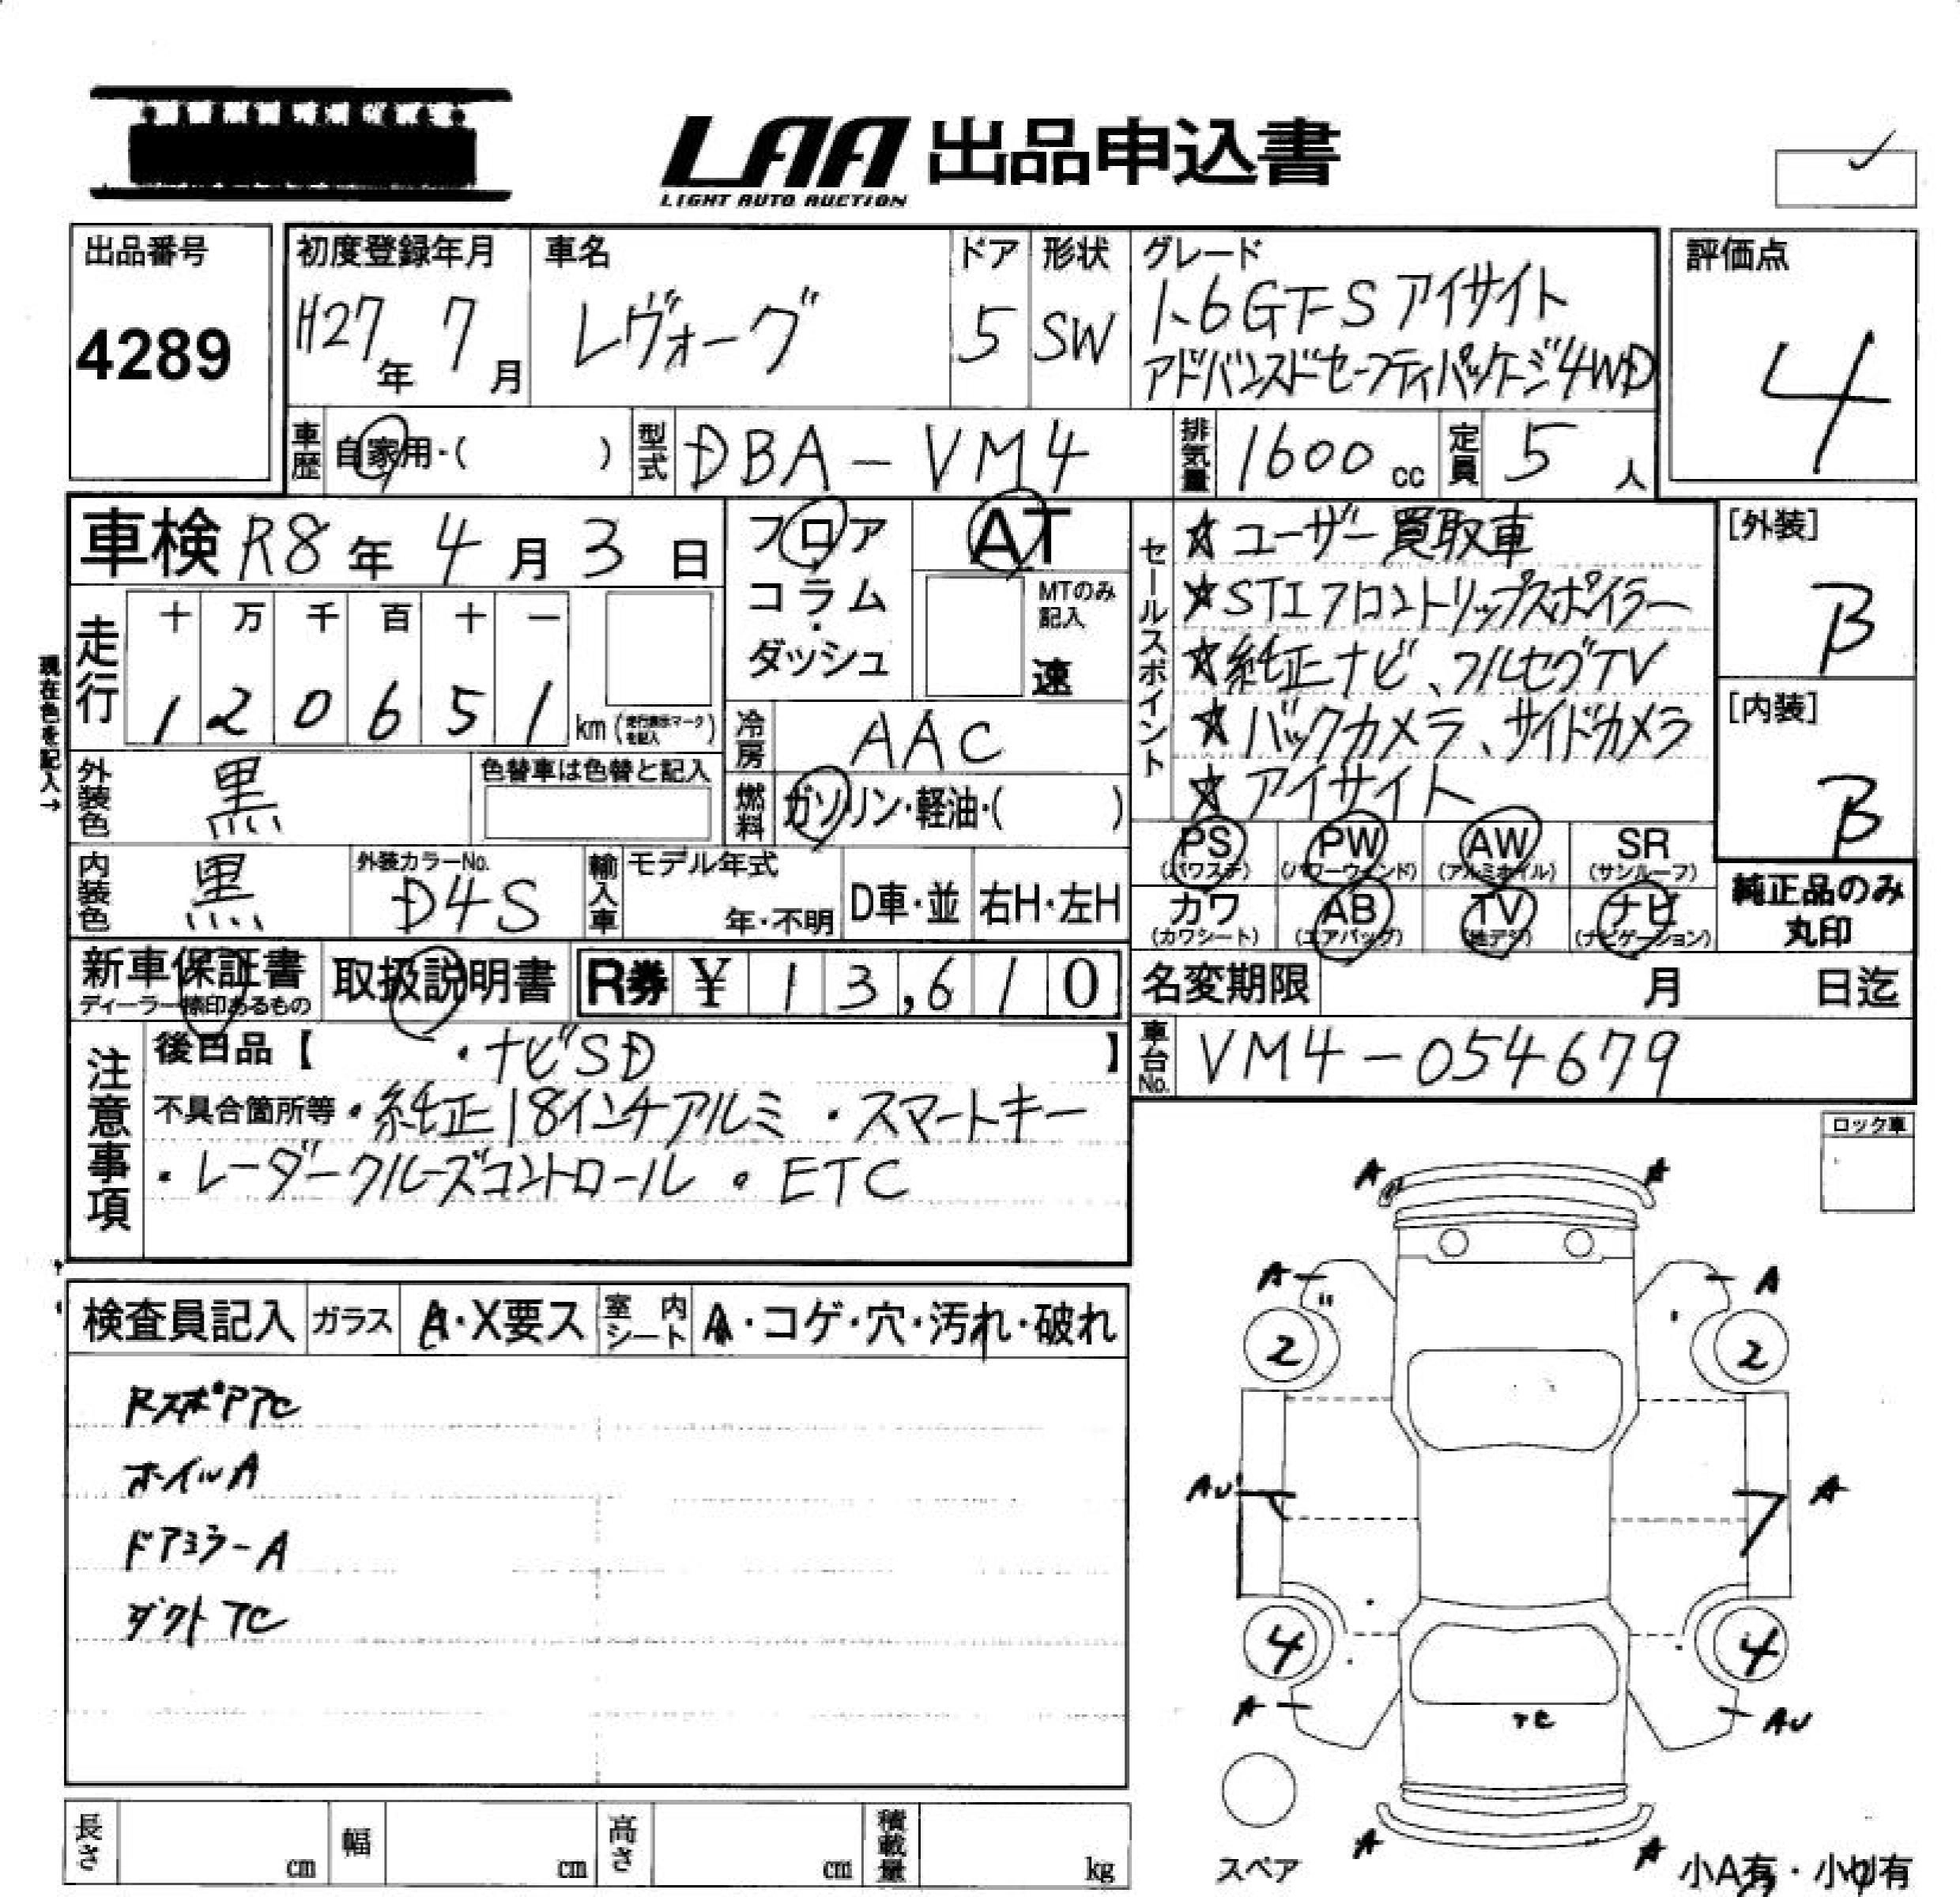 LAA 出品申込書
LIGHT AUTO AUCTION
出品番号
4289
初度登録年月
H27年 7月
車名
レヴォーグ
ドア
5
形状
SW
グレード
1.6GT-S アイサイト
アドバンスドセーフティパッケージ4WD
評価点
4
車歴
自家用・( )
型式
DBA-VM4
排気量
1600 cc
定員
5 人
車検 R8年 4月 3日
走行
十 万 千 百 十 一
1 2 0 6 5 1 km (走行表示マークを記入)
現在色を記入→
フロア
コラム
・
ダッシュ
AT
MTのみ記入
速
冷房
AAC
燃料
ガソリン・軽油・( )
セールスポイント
☆ユーザー買取車
☆STIフロントリップスポイラー
☆純正ナビ、フルセグTV
☆バックカメラ、サイドカメラ
☆アイサイト
[外装]
B
[内装]
B
外装色
黒
色替車は色替と記入
内装色
黒
外装カラーNo.
D4S
輸入車
モデル年式
年・不明
D車・並
右H・左H
PS (パワステ)
PW (パワーウィンド)
AW (アルミホイル)
SR (サンルーフ)
カワ (カワシート)
AB (エアバッグ)
TV (地デジ)
ナビ (ナビゲーション)
純正品のみ
丸印
新車保証書
ディーラー捺印あるもの
取扱説明書
R券 ¥ 13,610
名変期限 月 日迄
車台No.
VM4-054679
注意事項
後日品【 ・ナビSD 】
不具合箇所等・純正18インチアルミ ・スマートキー
・レーダークルーズコントロール ・ETC
ロック車
検査員記入
ガラス
A・X要ス
室内シート
A・コゲ・穴・汚れ・破れ
RスポPTC
ホイルA
ドアミラーA
ダクトTC
A A
A A
2 2
AU A
4 4
A AU
TC
A A
スペア
小A有・小U有
長さ cm
幅 cm
高さ cm
積載量 kg